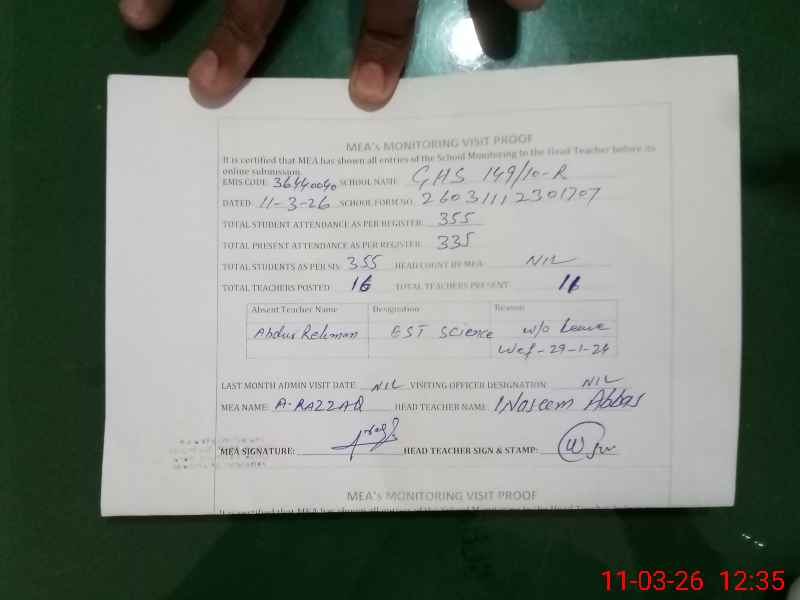 MEA's MONITORING VISIT PROOF
It is certified that MEA has shown all entries of the School Monitoring to the Head Teacher before its
online submission.
EMIS CODE: 36440040 SCHOOL NAME: GHS 149/10-R
DATED: 11-3-26 SCHOOL FORM NO. 26031112301707
TOTAL STUDENT ATTENDANCE AS PER REGISTER: 355
TOTAL PRESENT ATTENDANCE AS PER REGISTER: 335
TOTAL STUDENTS AS PER SIS: 355 HEAD COUNT BY MEA: NIL
TOTAL TEACHERS POSTED: 16 TOTAL TEACHERS PRESENT: 16
Absent Teacher Name Designation Reason
Abdur Rehman EST Science w/o Leave
wef-29-1-24
LAST MONTH ADMIN VISIT DATE: NIL VISITING OFFICER DESIGNATION: NIL
MEA NAME: A.RAZZAQ HEAD TEACHER NAME: Naseem Abbas
MEA SIGNATURE: HEAD TEACHER SIGN & STAMP:
MEA's MONITORING VISIT PROOF
11-03-26 12:35